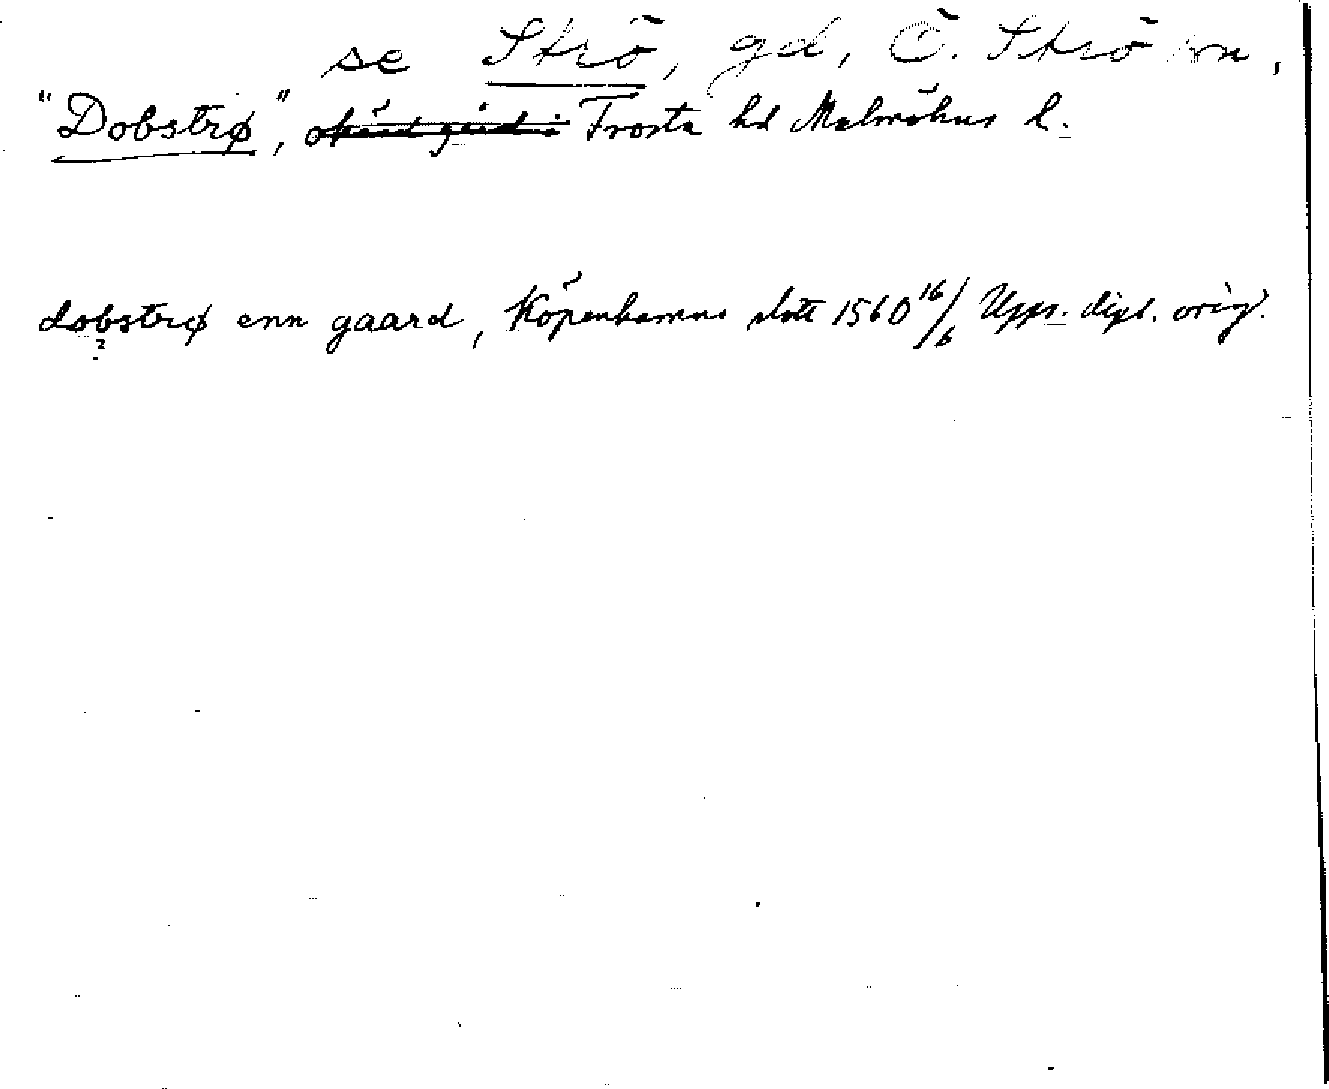 se Strö, gd, Ö. Strö sn,
"Dobstrø", okänd gård i Frosta hd Malmöhus l.
dobstrø enn gaard, Köpenhamns slott 1560 16/6 Upps. dipl. orig.
?